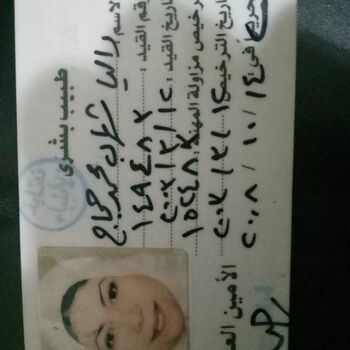 طبيب بشرى
الاسم : داليا شعبان محمد حجاج
رقم القيد : ١٤٩٤٨٢
تاريخ القيد : ٢٠٠٣/٣/١٢
ترخيص مزاولة المهنة : ١٥٢٤٨٢
تاريخ الترخيص ٢٠٠٣/٣/١٢
تحريرا فى ٢٠٠٨/١٠/١٤
الأمين العـ
نقابة